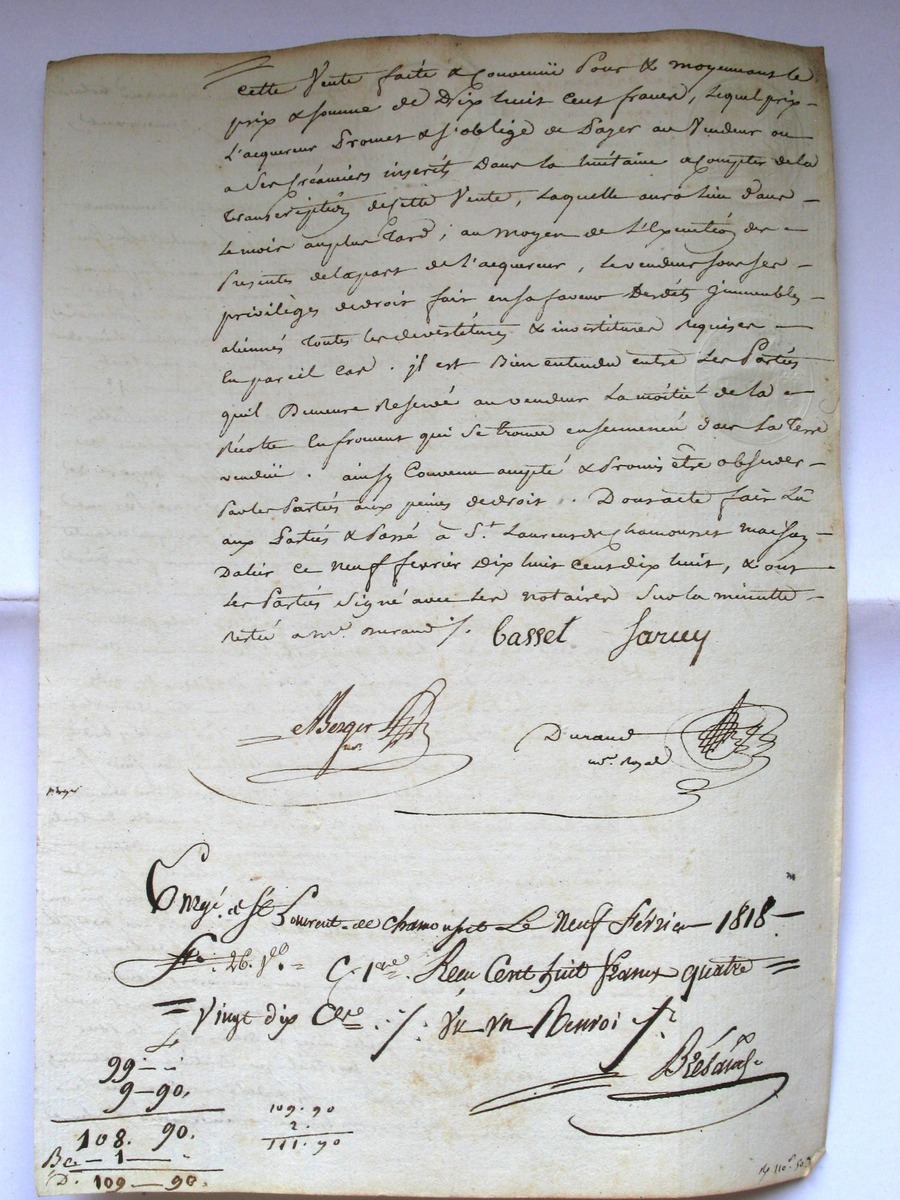 Cette Vente faite & Convenüe Pour & moyennant le
prix & somme de Dix huit Cent francs, lequel prix
L'acquereur Promet & s'oblige de Payer au Vendeur ou
a Ses Créanciers inscrits Dans la huitaine a Compter de la
Transcription de Cette Vente, Laquelle aura lieu dans
Le mois au plus Tard; au moyen de l'Execution des
Presentes de la part de l'acquereur, le vendeur sous ses
privilèges de droit fait en sa faveur Desdits immeubles
aliennés Toutes les devestitures & investitures requises
En pareil Cas. il est Bien entendu entre Les Parties
quil Demeure Reservé au vendeur La moitié de la
Récolte En froment qui Se trouve ensemencé dans La Terre
vendüe. ainsy Convenu accepté & Promis être observer
Par les Parties aux peines de droit. Dont acte fait Lû
aux Parties & Passé à St. Laurent de Chamousset maison
Dalin Ce neuf fevrier dix huit Cent dix huit, & ont
Les Parties Signé avec Les notaires Sur la minutte
restée a Me. Durand ./. Casset Sarcey
Berger nre.
Durand
nre Royal
Enrgé. a St Laurent de chamousset Le neuf Février 1818
fo. 26. Vo C. 1re. Reçu Cent huit francs quatre
Vingt dix Ces ./. Vu un Renvoi
99
9 - 90.
108. 90.
1
D. 109 - 90.
109. 90
2.
111. 90